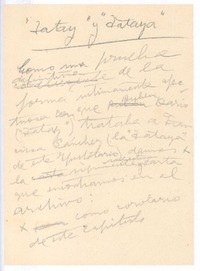 "Tatay" y "Tataya"
Como una prueba
de la
forma íntimamente afec-
tuosa con que Rubén Darío
(Tatay) trataba a Fran-
cisca Sánchez (la "Tataya"
de este Epistolario) damos a
la siguiente carta
que encontramos en el
archivo:
x como corolario
de este capítulo